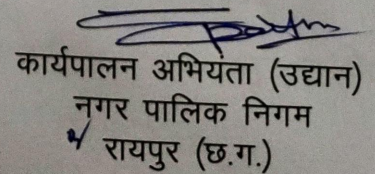 कार्यपालन अभियंता (उद्यान)
नगर पालिक निगम
रायपुर (छ.ग.)